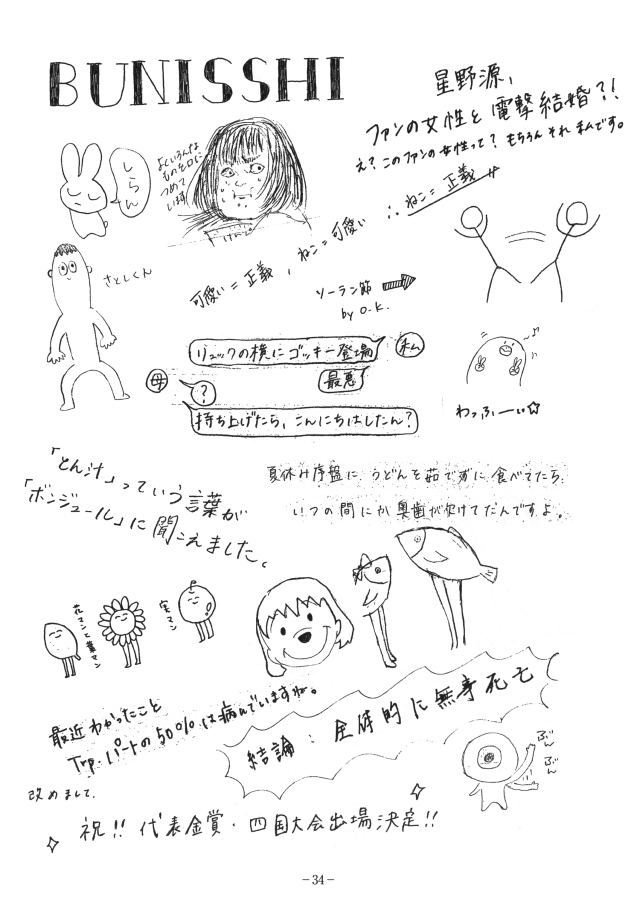 BUNISSHI
星野源、
ファンの女性と電撃結婚?!
え?このファンの女性って?もちろんそれ私です。
しらん
よくいろんな
ものを口に
つめて
います
可愛い=正義、ねこ=可愛い ∴ねこ=正義
さとしくん
ソーラン節
by O.K.
リュックの横にゴッキー登場
私
最悪
母
?
持ち上げたら、こんにちはしたん?
わっふーい☆
「とん汁」っていう言葉が
「ボンジュール」に聞こえました。
夏休み序盤に うどんを茹でずに食べてたら、
いつの間にか奥歯が欠けてたんですよ。
花マンと葉マン
実マン
最近わかったこと
Trp.パートの50%は病んでいますね。
結論:全体的に無事死亡
ぶん
ぶん
改めまして、
祝!!代表金賞・四国大会出場決定!!
−34−